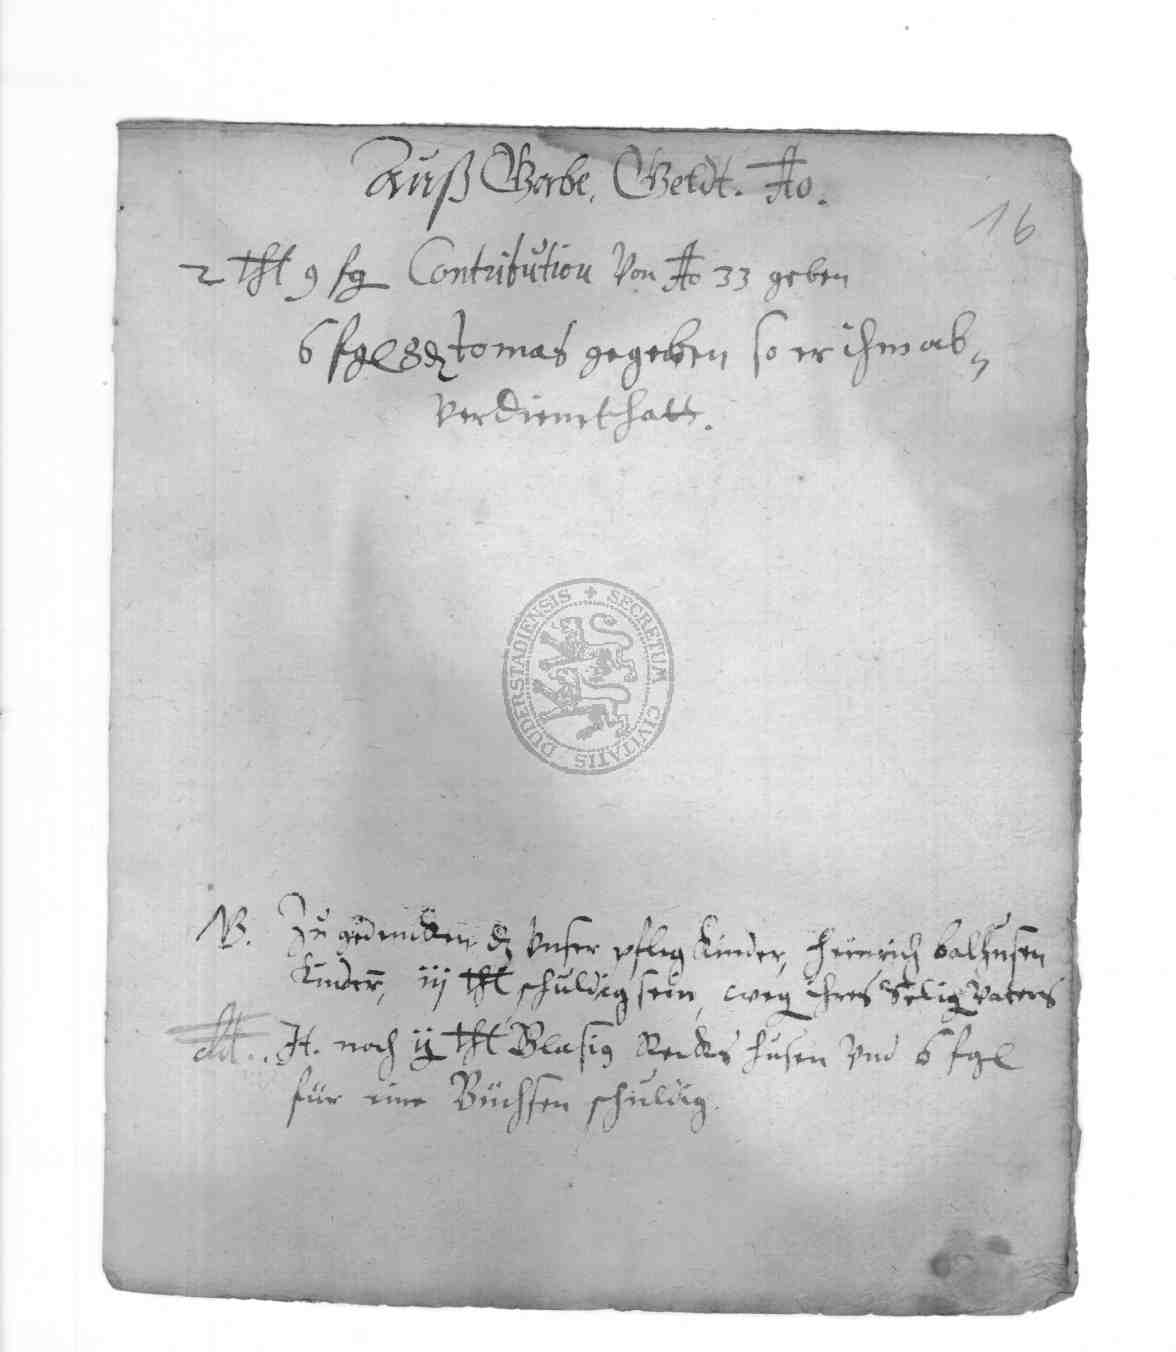 Auß Gabe. Geldt. Ao.
16
2 thl 9 ßg Contribution Von Ao 33 geben
6 ßgl 8 ₰ tomas gegeben so er ihm ab„
verdient hatt.
SECRETUM CIVITATIS DUDERSTADIENSIS
NB. Zu gedencken dz Unser pfleg Kinder, Heinrich balhusen
Kinder, iij thl schuldig sein, weg ihres Selig Vaters
It. noch ij thl Blasius husen Und 6 ßgl
für eine Büchsen schuldig.